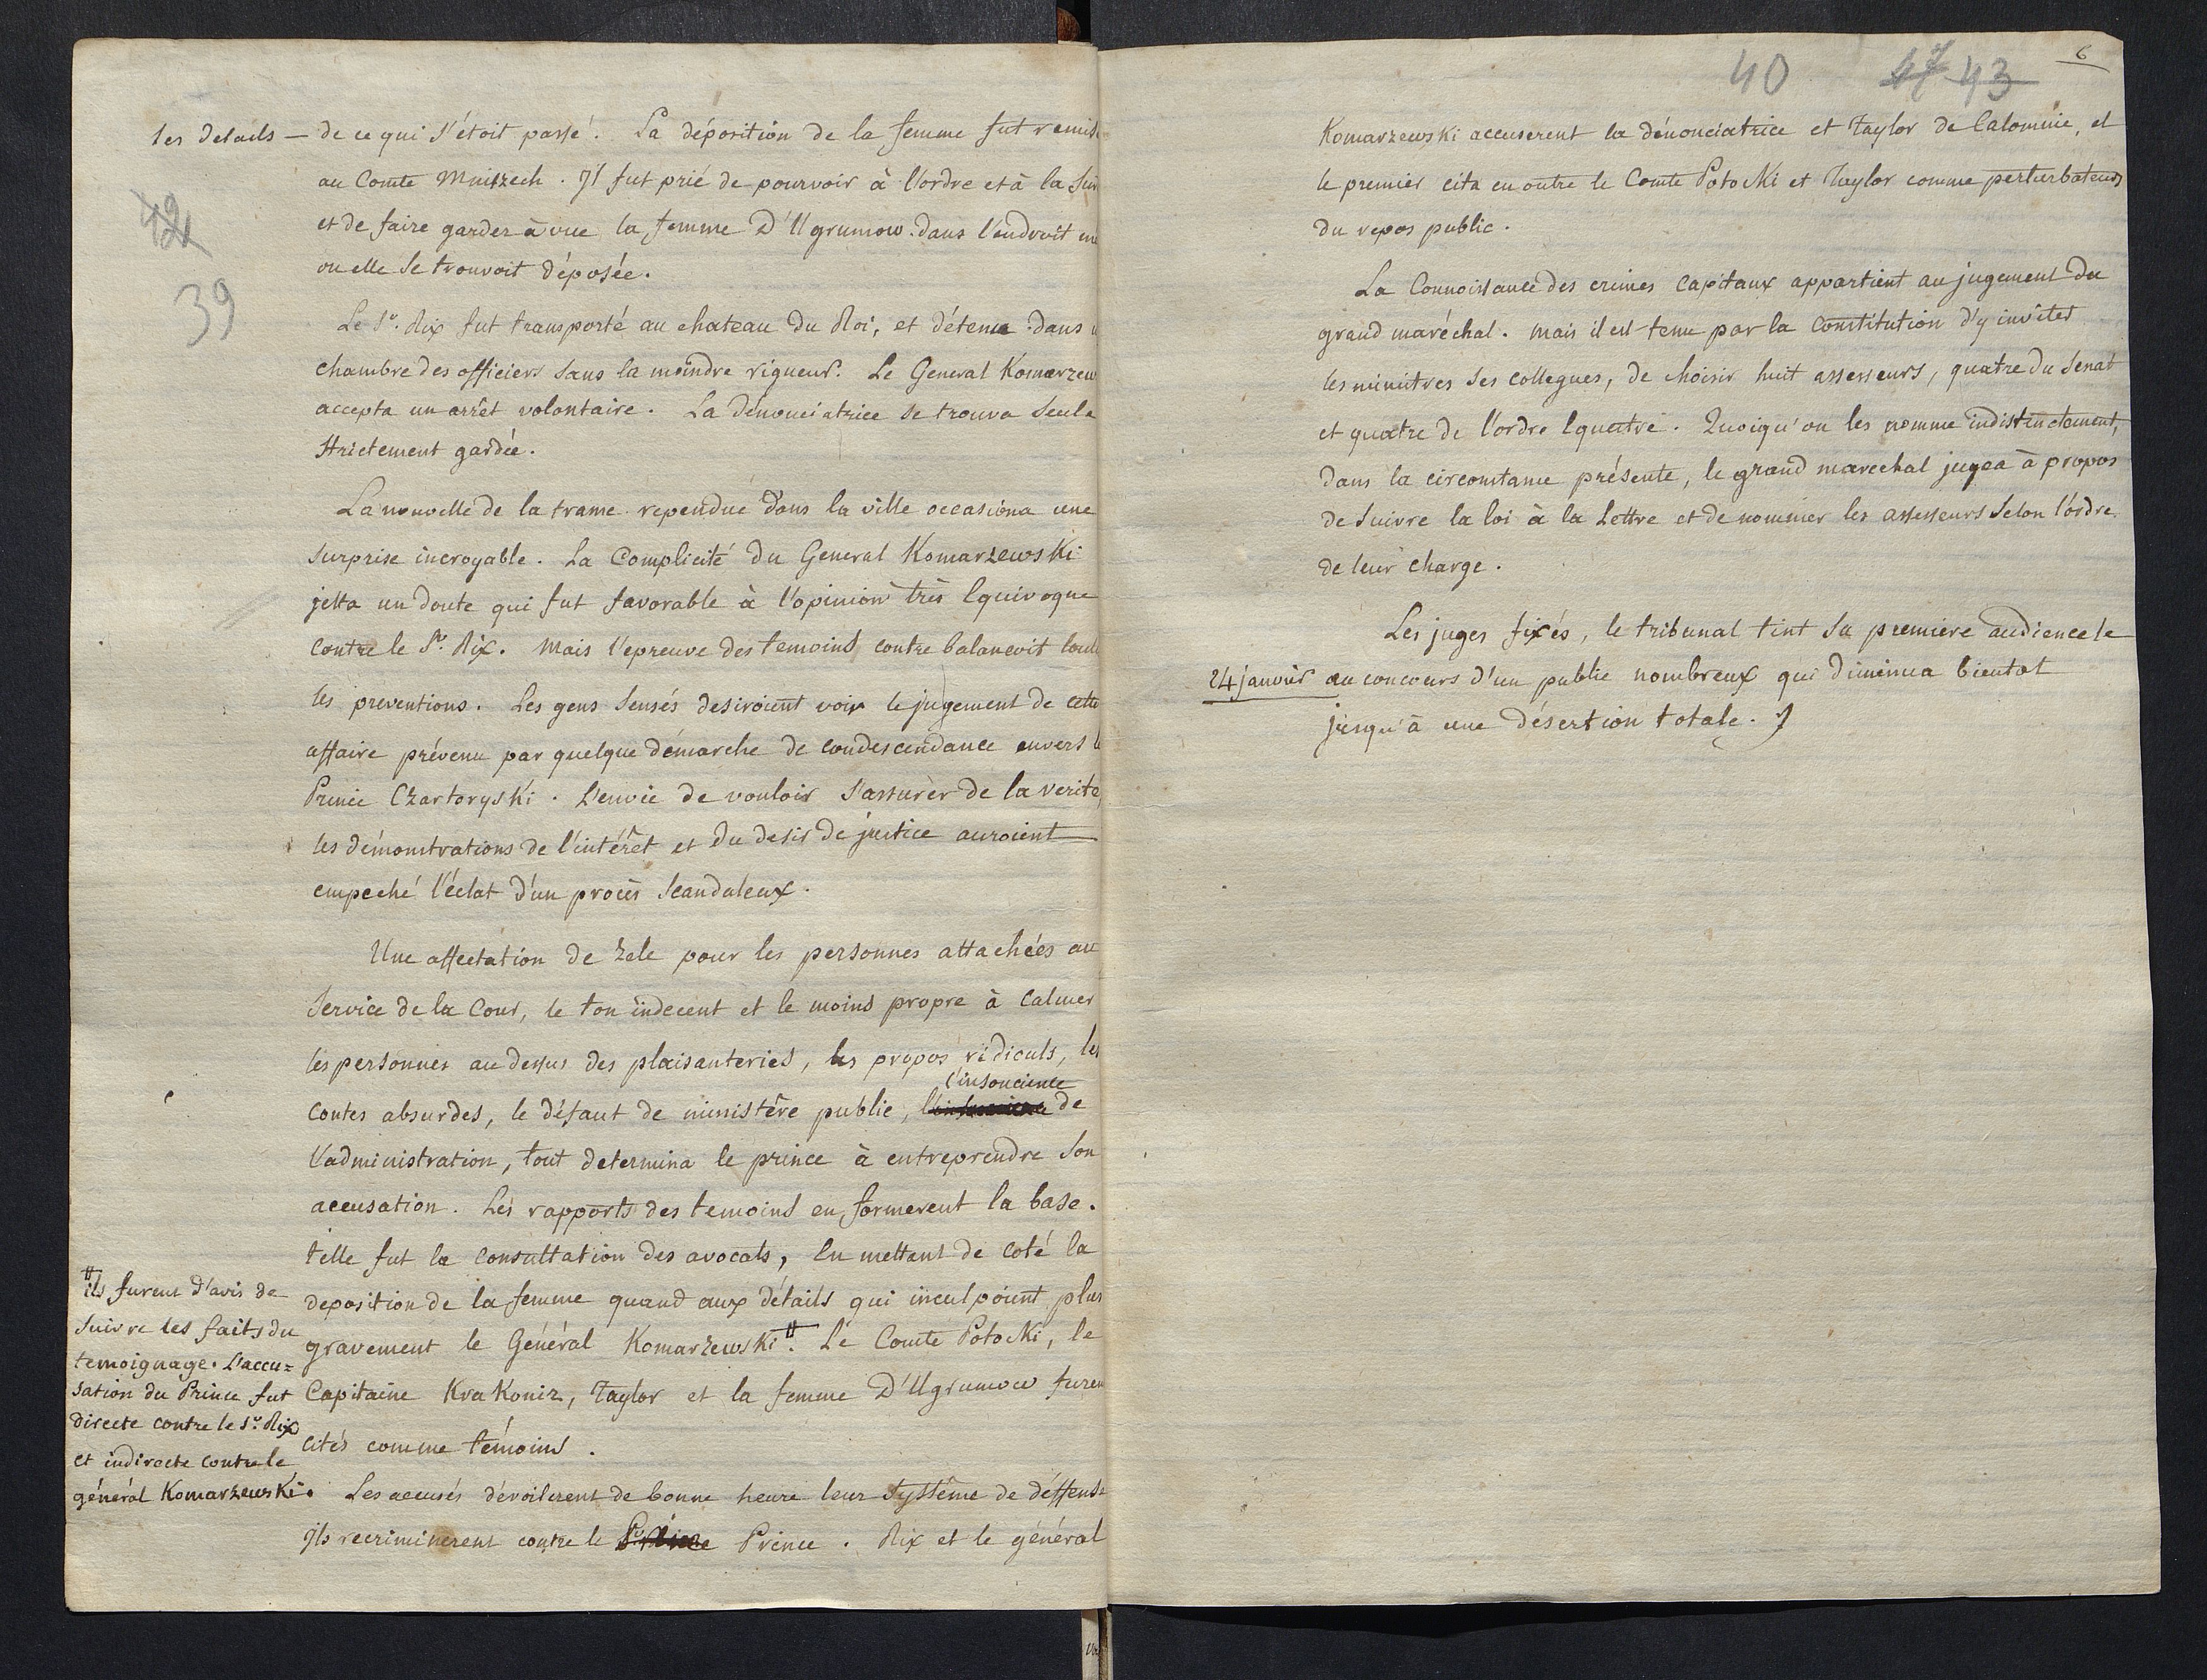 les details — de ce qui s'étoit passé. La déposition de la femme fut remise
au Comte Mniszech. Il fut prié de pourvoir à l'ordre et à la
et de faire garder à vue la femme D'Ugrumow dans l'endroit
ou elle se trouvoit déposée.
42
39
Le Sr. Rix fut transporté au chateau du Roi, et détenu dans
chambre des officiers sans la moindre rigueur. Le General Komarzew
accepta un arrêt volontaire. La dénonciatrice se trouva seule
strictement gardée.
La nouvelle de la trame rependue dans la ville occasiona une
surprise incroyable. La Complicité du General Komarzewski
jetta un doute qui fut favorable à l'opinion très Equivoque
contre le Sr. Rix. Mais l'epreuve des temoins contre balancoit
les preventions. Les gens sensés desiroient voir le jugement de cette
affaire prévenu par quelque démarche de condescendance envers le
Prince Czartoryski. L'envie de vouloir s'assurer de la verité,
les démonstrations de l'intérêt et du desir de justice auroient
empeché l'éclat d'un procès scandaleux.
Une affectation de zele pour les personnes attachées au
service de la Cour, le ton indecent et le moins propre à calmer
les personnes au dessus des plaisanteries, les propos ridiculs, les
l'insouciente
contes absurdes, le défaut de ministère public, de
l'administration, tout determina le prince à entreprendre son
accusation. Les rapports des temoins en formerent la base.
telle fut la consultation des avocats, En mettant de coté la
deposition de la femme quand aux détails qui inculpoient plus
gravement le Général Komarzewski #. Le Comte Potocki, le
Capitaine Krakoniz, Taylor et la femme D'Ugrumow furen
cités comme témoins.
# ils furent d'avis de
suivre les faits du
temoignage. L'accu=
sation du Prince fut
directe contre le Sr. Rix
et indirecte contre le
général Komarzewski.
Les accusés dévoilerent de bonne heure leur système de déffense
Ils recriminerent contre le Prince Prince. Rix et le général
40 47 43 6
Komarzewski accuserent la dénonciatrice et Taylor de Calomnie, et
le premier cita en outre le Comte Potocki et Taylor comme perturbateurs
du repos public.
La Connoissance des crimes capitaux appartient au jugement du
grand maréchal. mais il est tenu par la Constitution d'y inviter
les ministres ses collegues, de choisir huit assesseurs, quatre du Senat
et quatre de l'ordre Equestre. Quoiqu'on les nomme indistinctement,
dans la circonstance présente, le grand marechal jugea à propos
de suivre la loi à la Lettre et de nommer les assesseurs selon l'ordre
de leur charge.
Les juges fixés, le tribunal tint sa premiere audience le
24 janvier au concours d'un public nombreux qui diminua bientot
jusqu'à une désertion totale.